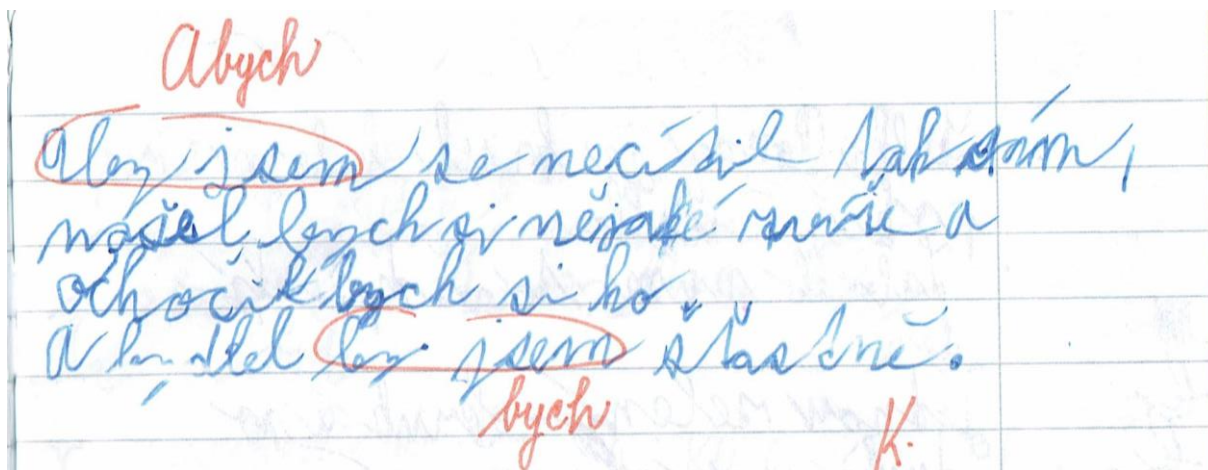 Abych
Aby jsem se necítil tak sám,
našel bych si nějaké zvíře a
ochočil bych si ho.
A bydlel by jsem šťastně.
bych
K.